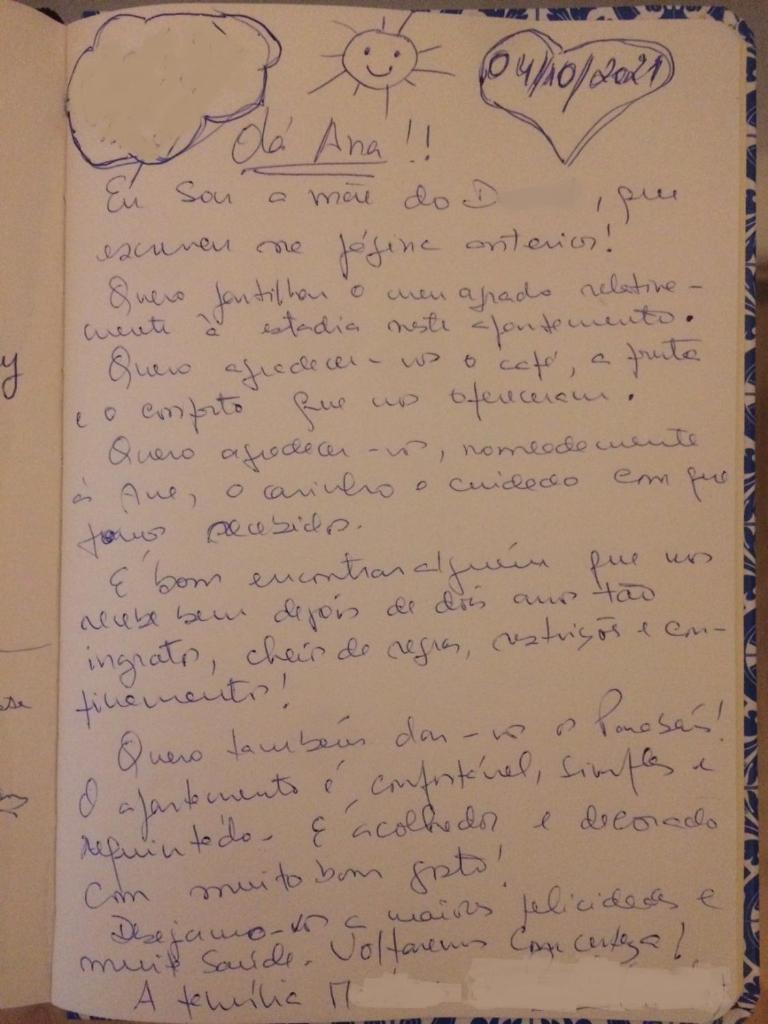 04/10/2021
Olá Ana!!
Eu sou a mãe do D , que
escreveu na página anterior!
Quero partilhar o meu agrado relativa-
mente à estadia neste apartamento.
Quero agradecer-vos o café, a fruta
e o conforto que nos ofereceram.
Quero agradecer-vos, nomeadamente
à Ana, o carinho e cuidado com que
fomos recebidos.
É bom encontrar alguém que nos
recebe bem depois de dois anos tão
ingratos, cheios de regras, restrições e con-
finamentos!
Quero também dar-vos os Parabéns!
O apartamento é, confortável, simples e
requintado. É acolhedor e decorado
com muito bom gosto!
Desejamo-vos a maiores felicidades e
muita saúde. Voltaremos com certeza!
A família M